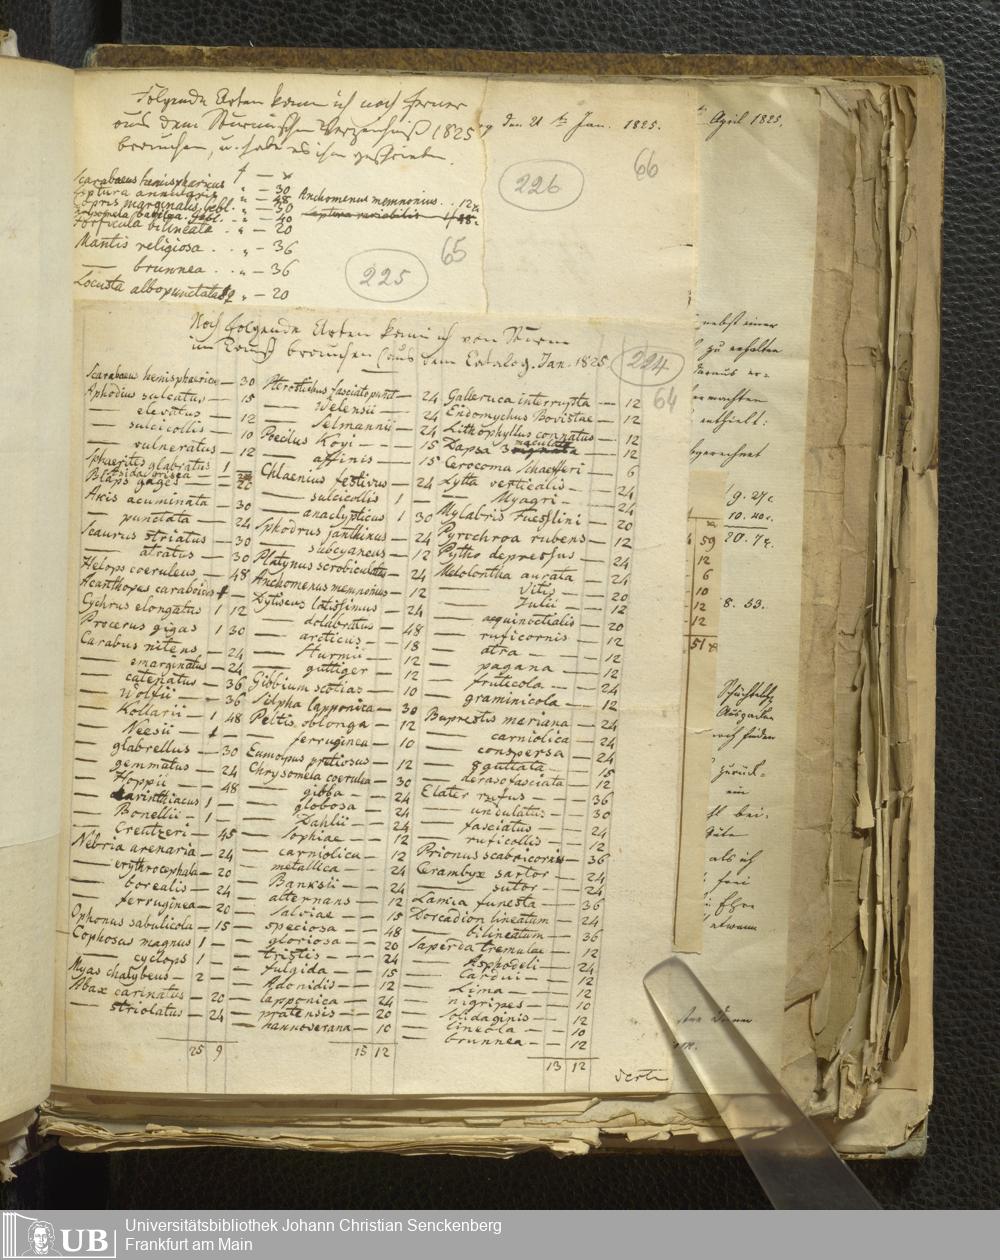 Folgende Arten kann ich noch ferner
aus dem Sturmischen Verzeichniß 1825
brauchen, u. habe es ihm geschrieben.
f — x
Scarabaeus hemisphaericus " — 30
Leptura annularis " — 48
Copris marginalis, Gebl. " — 30
Gebl. " — 40
Forficula bilineata . " — 20
Mantis religiosa . . " — 36
— brunnea . . " — 36
Locusta albopunctata " — 20
Anchomenus memnonius . . 12 x
Leptura variabilis
225
65
den 21 ten Jan. 1825.
226
66
April 1825.
Noch folgende Arten kann ich von Sturm
im Tausch brauchen (aus dem Catalog. Jan. 1825
224
64
Scarabaeus hemisphaericus — 30
Aphodius sulcatus — 15
— elevatus — 12
— sulcicollis — 10
— vulneratus — 12
Sphaerites glabratus 1 —
Blaps gages —
Akis acuminata — 30
— punctata — 24
Scaurus striatus — 30
— atratus — 30
Helops coeruleus — 48
Acanthopes caraboides 1 —
Cychrus elongatus 1 12
Procerus gigas 1 30
Carabus nitens — 24
— emarginatus — 24
— catenatus — 36
— Wolfii — 36
— Kollarii — 1 48
— Neesii — 1 —
— glabrellus — 30
— gemmatus — 24
— Hoppii — 48
— carinthiacus 1 —
— Bonellii — 1 —
— Creutzeri — 45
Nebria arenaria — 24
— erythrocephala — 20
— borealis — 24
— ferruginea — 20
Ophonus sabulicola — 15
Cophosus magnus 1 —
— cyclops 1 —
Myas chalybeus — 2 —
Abax carinatus — 20
— striolatus — 24
25 9
Pterostichus fasciatopunct — 24
— Welensii — 24
— Selmannii — 24
Poecilus Koyi — 15
— affinis — 15
Chlaenius festivus — 24
— sulcicollis 1 —
— anaclypticus 1 30
Sphodrus janthinus — 24
— subcyaneus — 12
Platynus scrobiculatus — 24
Anchomenus memnonius — 12
Dytiscus latissimus — 24
— dolabratus — 48
— arcticus — 18
— Sturmii — 12
— guttiger — 12
Gibbium scotias — 10
Silpha lapponica — 30
Peltis oblonga — 12
— ferruginea — 10
Eumolpus pretiosus — 12
Chrysomela coerulea — 30
— gibba — 24
— globosa — 24
— Dahlii — 24
— Sophiae — 12
— carniolica — 12
— metallica — 24
— Banksii — 24
— alternans — 12
— Salviae — 15
— speciosa — 48
— gloriosa — 20
— tristis — 24
— fulgida — 15
— Adonidis — 12
— lapponica — 24
— pratensis — 20
— hannoverana — 10
15 12
Galleruca interrupta — 12
Endomychus Bovistae — 12
Lithophyllus connatus — 12
Dapsa 3 maculata — 12
Cerocoma Schaefferi — 6
Lytta verticalis — 24
— Myagri — 24
Mylabris Fuesslini — 20
Pyrochroa rubens — 12
Pytho depressus — 24
Melolontha aurata — 24
— Vitis — 20
— Julii — 12
— aequinoctialis — 20
— ruficornis — 12
— atra — 12
— pagana — 12
— fruticola — 24
— graminicola — 12
Buprestis mariana — 24
— carniolica — 24
— conspersa — 24
— 8 guttata — 15
— derasofasciata — 12
Elater rufus — 36
— undulatus — 30
— fasciatus — 24
— ruficollis — 12
Prionus scabricornis — 36
Cerambyx sartor — 24
— sutor — 24
Lamia funesta — 36
Dorcadion lineatum — 24
— bilineatum — 36
Saperda tremulae — 12
— Asphodeli — 24
— Cardui — 12
— Lima — 12
— nigripes — 10
— solidaginis — 12
— lineola — 10
— brunnea — 12
13 12
59
12
6
10
12
12
51 x
nebst einer
zu erhalten
enthielt:
9. 27 x
10. 40 x
20. 7 x.
8. 53.
zurück-
ein
bei.
Güte
als ich
frei
UB
Universitätsbibliothek Johann Christian Senckenberg
Frankfurt am Main